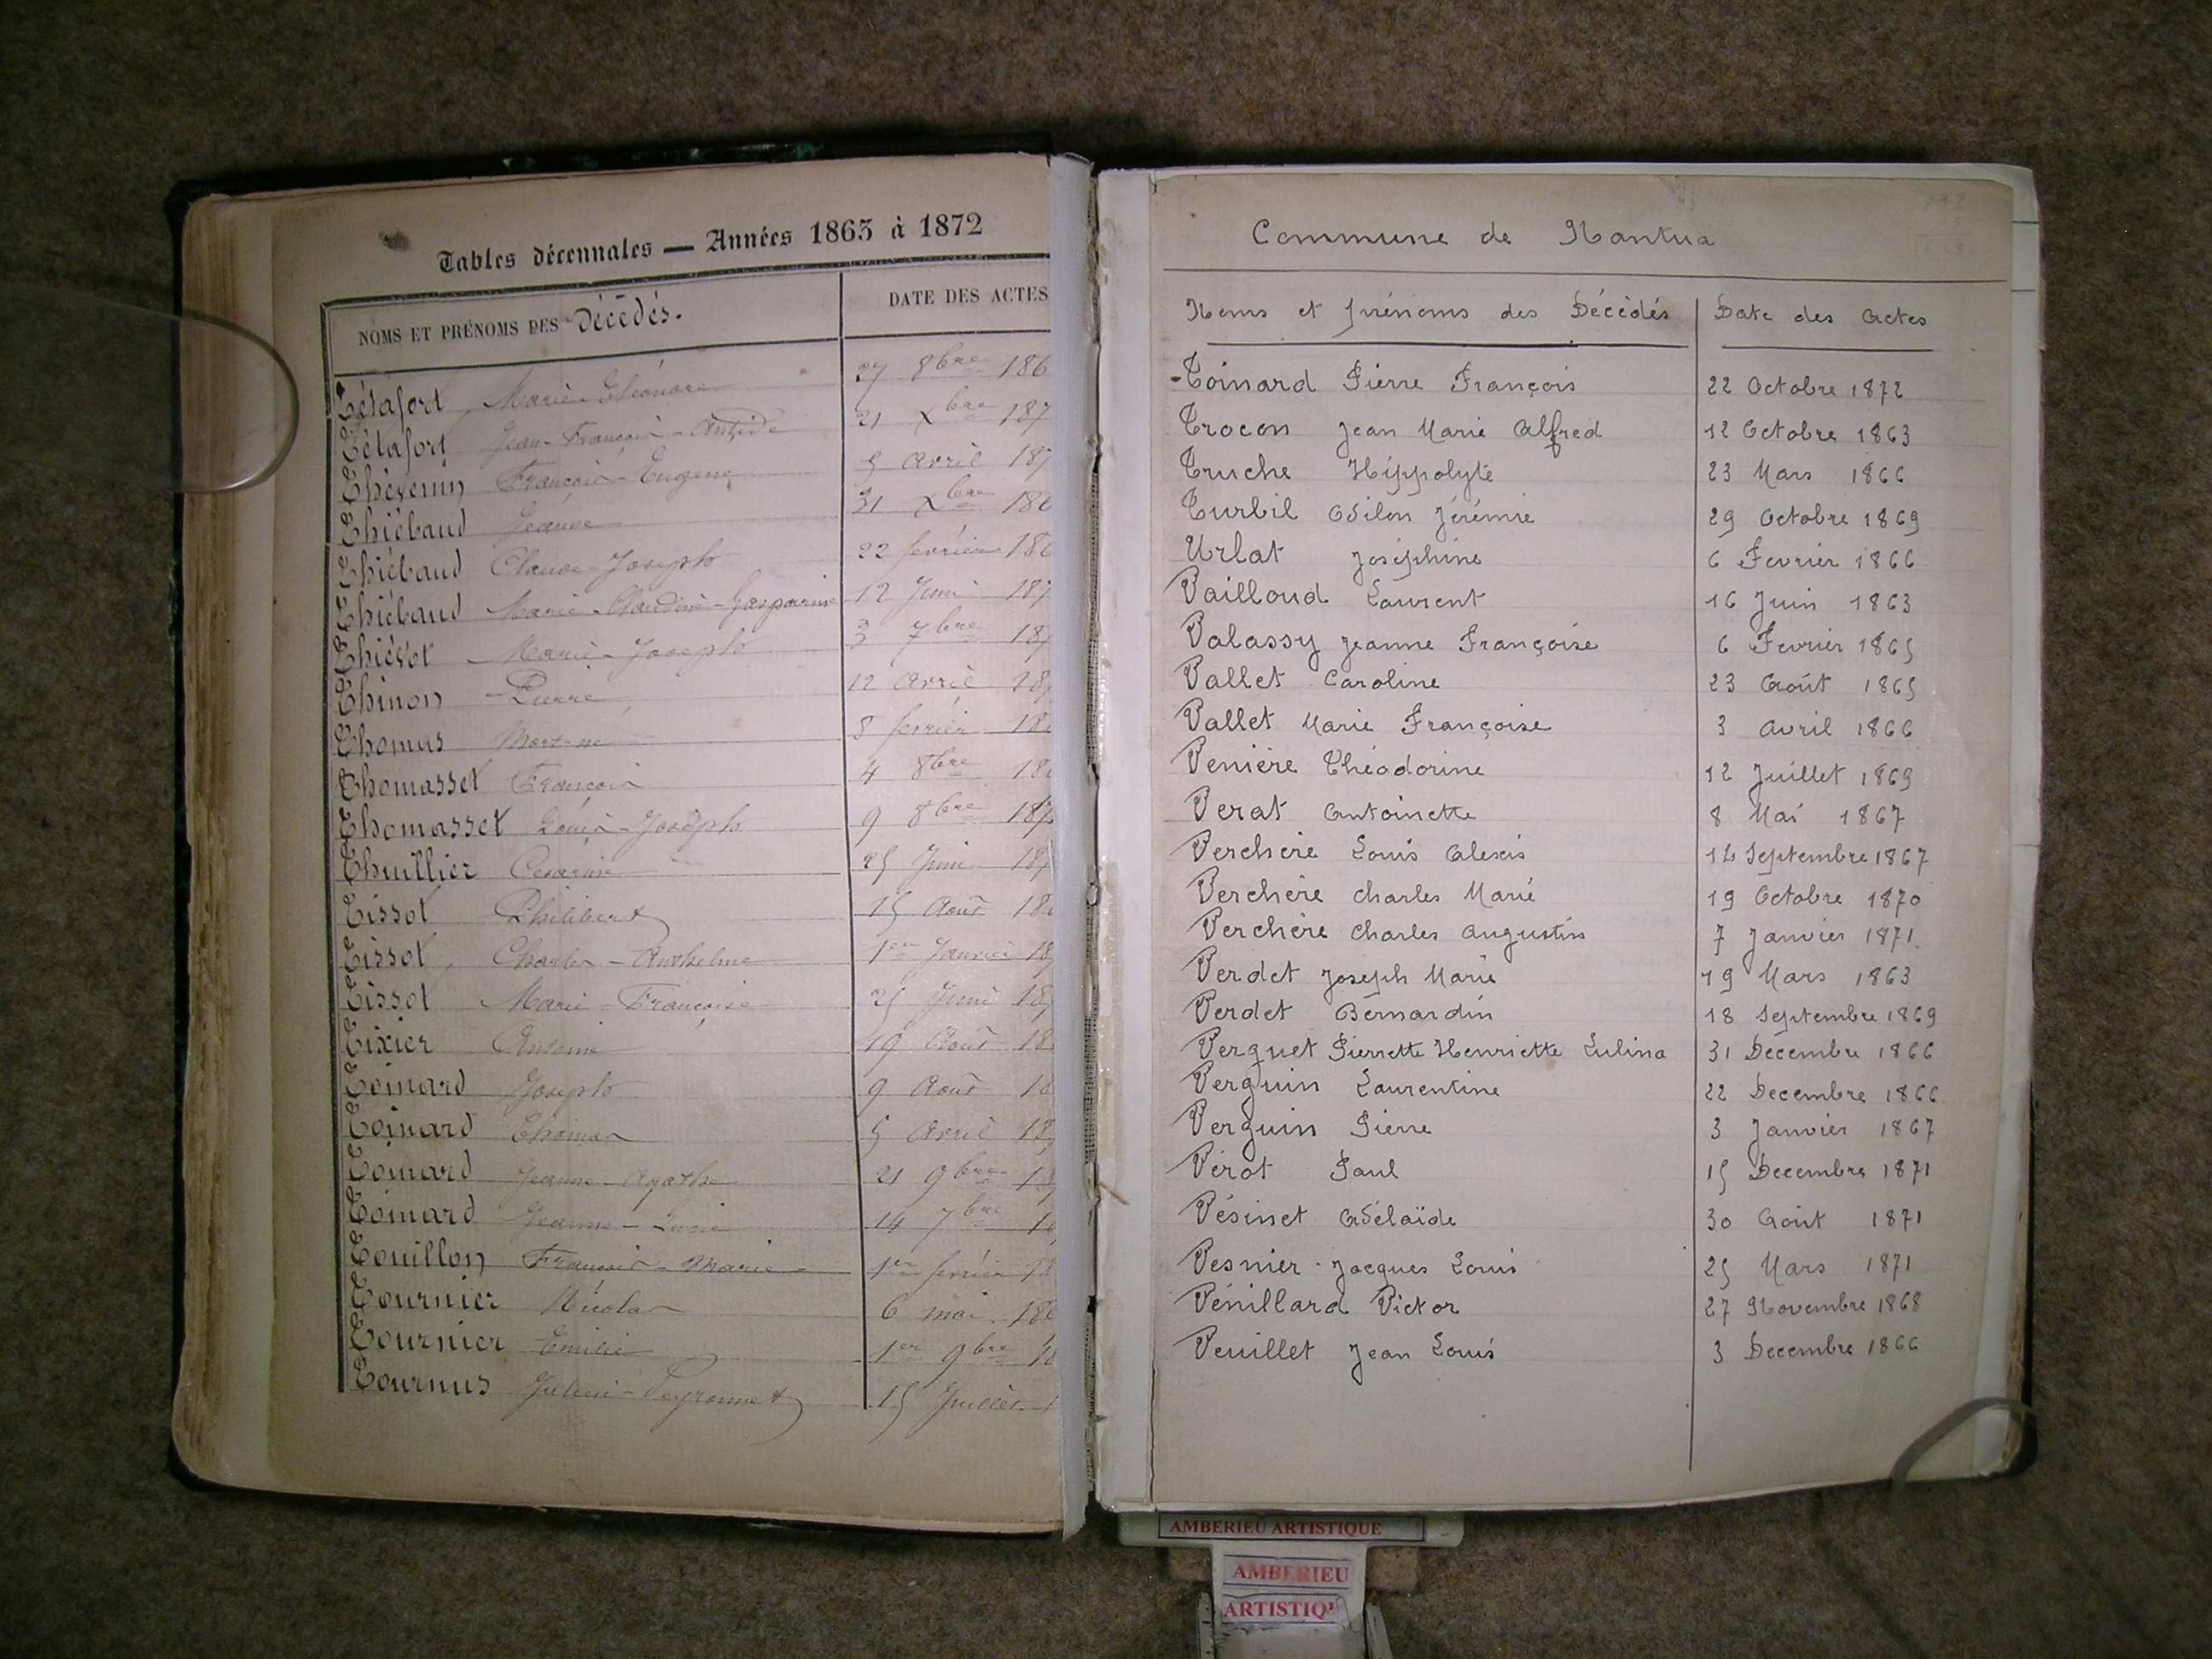 Tables décennales — Années 1863 à 1872
NOMS ET PRÉNOMS DES Décédés. DATE DES ACTES
Tétafort Marie-Eléonore 27 8bre 186
Tétafort Jean-François-Antide 21 Xbre 187
Thévenin François-Eugène 5 avril 187
Thiébaud Jeanne 31 Xbre 186
Thiébaud Claude-Joseph 22 février 186
Thiébaud Marie-Claudine-Gasparine 12 Juin 187
Thiévot Marie-Joseph 3 7bre 187
Thinon Pierre 12 avril 18
Thomas Mort-né 8 février 18
Thomasset François 4 8bre 18
Thomasset Louis-Joseph 9 8bre 187
Thuillier Césarine 25 Juin 187
Tissot Philibert 15 Août 18
Tissot Charles-Anthelme 1er Janvier 18
Tissot Marie-Françoise 25 Juin 18
Tixier Antoine 19 Août 18
Toinard Joseph 9 Août 18
Toinard Thomas 5 Avril 18
Toinard Jeanne-Agathe 21 9bre 18
Toinard Jeanne-Lucie 14 7bre 18
Touillon François-Marie 1er février 18
Tournier Nicolas 6 mai 186
Tournier Emilie 1er 9bre 18
Tournus Julien-Peyronnet 15 Juillet 1
Commune de Nantua
Noms et prénoms des Décédés Date des Actes
-Toinard Pierre François 22 Octobre 1872
Trocon Jean Marie Alfred 12 Octobre 1863
Truche Hippolyte 23 Mars 1866
Turbil Odilon Jérémie 29 Octobre 1869
Urlat Joséphine 6 Fevrier 1866
Vailloud Laurent 16 Juin 1863
Valassy Jeanne Françoise 6 Fevrier 1865
Vallet Caroline 23 Août 1865
Vallet Marie Françoise 3 Avril 1866
Venière Théodorine 12 Juillet 1869
Verat Antoinette 8 Mai 1867
Verchère Louis Alexis Septembre 1867
Verchère Charles Marie 19 Octobre 1870
Verchère Charles Augustin 7 Janvier 1871
Verdet Joseph Marie 19 Mars 1863
Verdet Bernardin 18 Septembre 1869
Verguet Pierrette Henriette Lulina 31 Decembre 1866
Verguin Laurentine 22 Decembre 1866
Verguin Pierre 3 Janvier 1867
Vérot Paul 15 Decembre 1871
Vésinet Adélaïde 30 Août 1871
Vesnier Jacques Louis 25 Mars 1871
Vénillard Victor 27 Novembre 1868
Veuillet Jean Louis 3 Decembre 1866
AMBERIEU ARTISTIQUE
AMBERIEU
ARTISTIQU